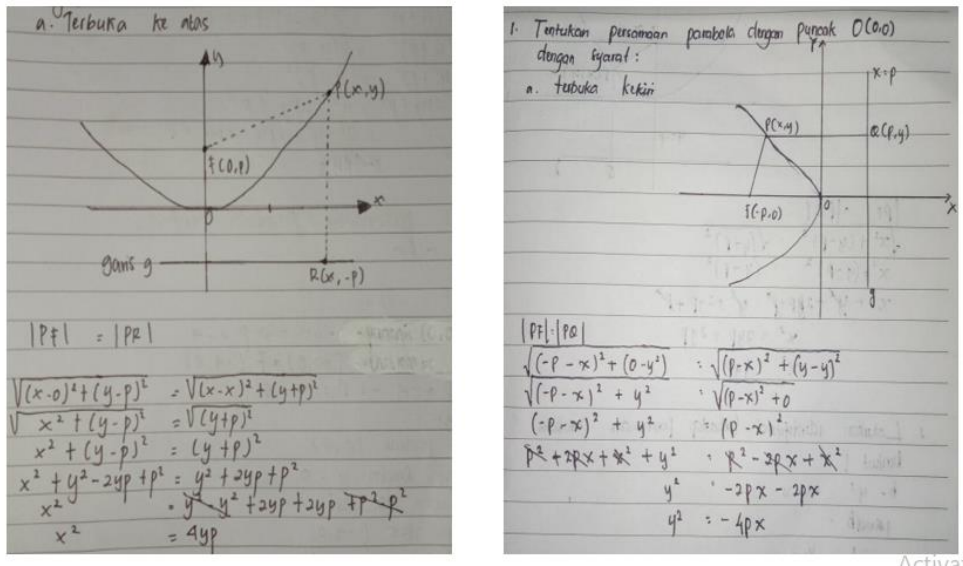 a. Terbuka ke atas
y
P(x,y)
f(0,p)
x
0
garis g
R(x,-p)
|PF| = |PR|
√(x-0)²+(y-p)² = √(x-x)²+(y+p)²
√x²+(y-p)² = √(y+p)²
x²+(y-p)² = (y+p)²
x²+y²-2yp+p² = y²+2yp+p²
x² = y²-y²+2yp+2yp+p²-p²
x² = 4yp
1. Tentukan persamaan parabola dengan puncak O(0,0)
dengan syarat :
a. terbuka kekiri
y
x=p
P(x,y)
Q(p,y)
f(-p,0)
0
x
g
|PF|=|PQ|
√(-p-x)²+(0-y²) = √(p-x)²+(y-y)²
√(-p-x)²+y² = √(p-x)²+0
(-p-x)²+y² = (p-x)²
p²+2px+x²+y² = p²-2px+x²
y² = -2px-2px
y² = -4px
Activa